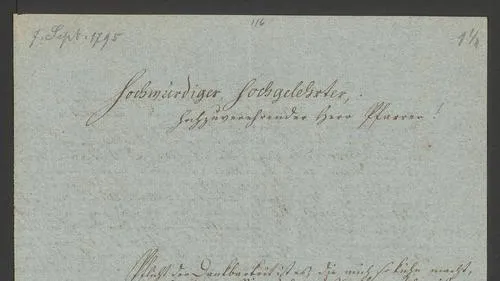 116
7. Sept. 1795
1 1/2
Hochwürdiger, Hochgelehrter,
Hochzuverehrender Herr Pfarrer!
Pflicht der Dankbarkeit ist es, die mich so kühn macht,